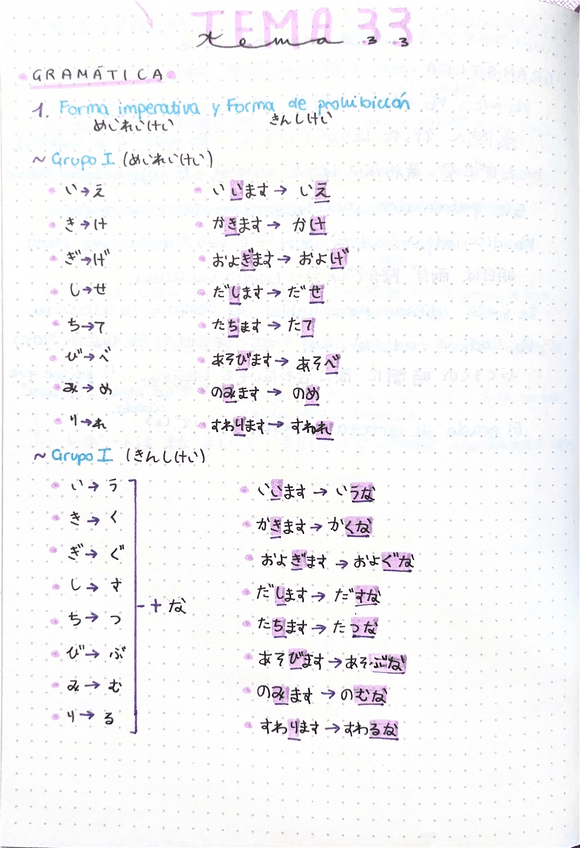 TEMA 33
tema 33
GRAMÁTICA
1. Forma imperativa y Forma de prohibición
めいれいけい きんしけい
~ Grupo I (めいれいけい)
い→え いいます → いえ
き→け かきます → かけ
ぎ→げ およぎます → およげ
し→せ だします → だせ
ち→て たちます → たて
び→べ あそびます → あそべ
み→め のみます → のめ
り→れ すわります → すわれ
~ Grupo I (きんしけい)
い → う いいます → いうな
き → く かきます → かくな
ぎ → ぐ およぎます → およぐな
し → す だします → だすな
ち → つ + な たちます → たつな
び → ぶ あそびます → あそぶな
み → む のみます → のむな
り → る すわります → すわるな